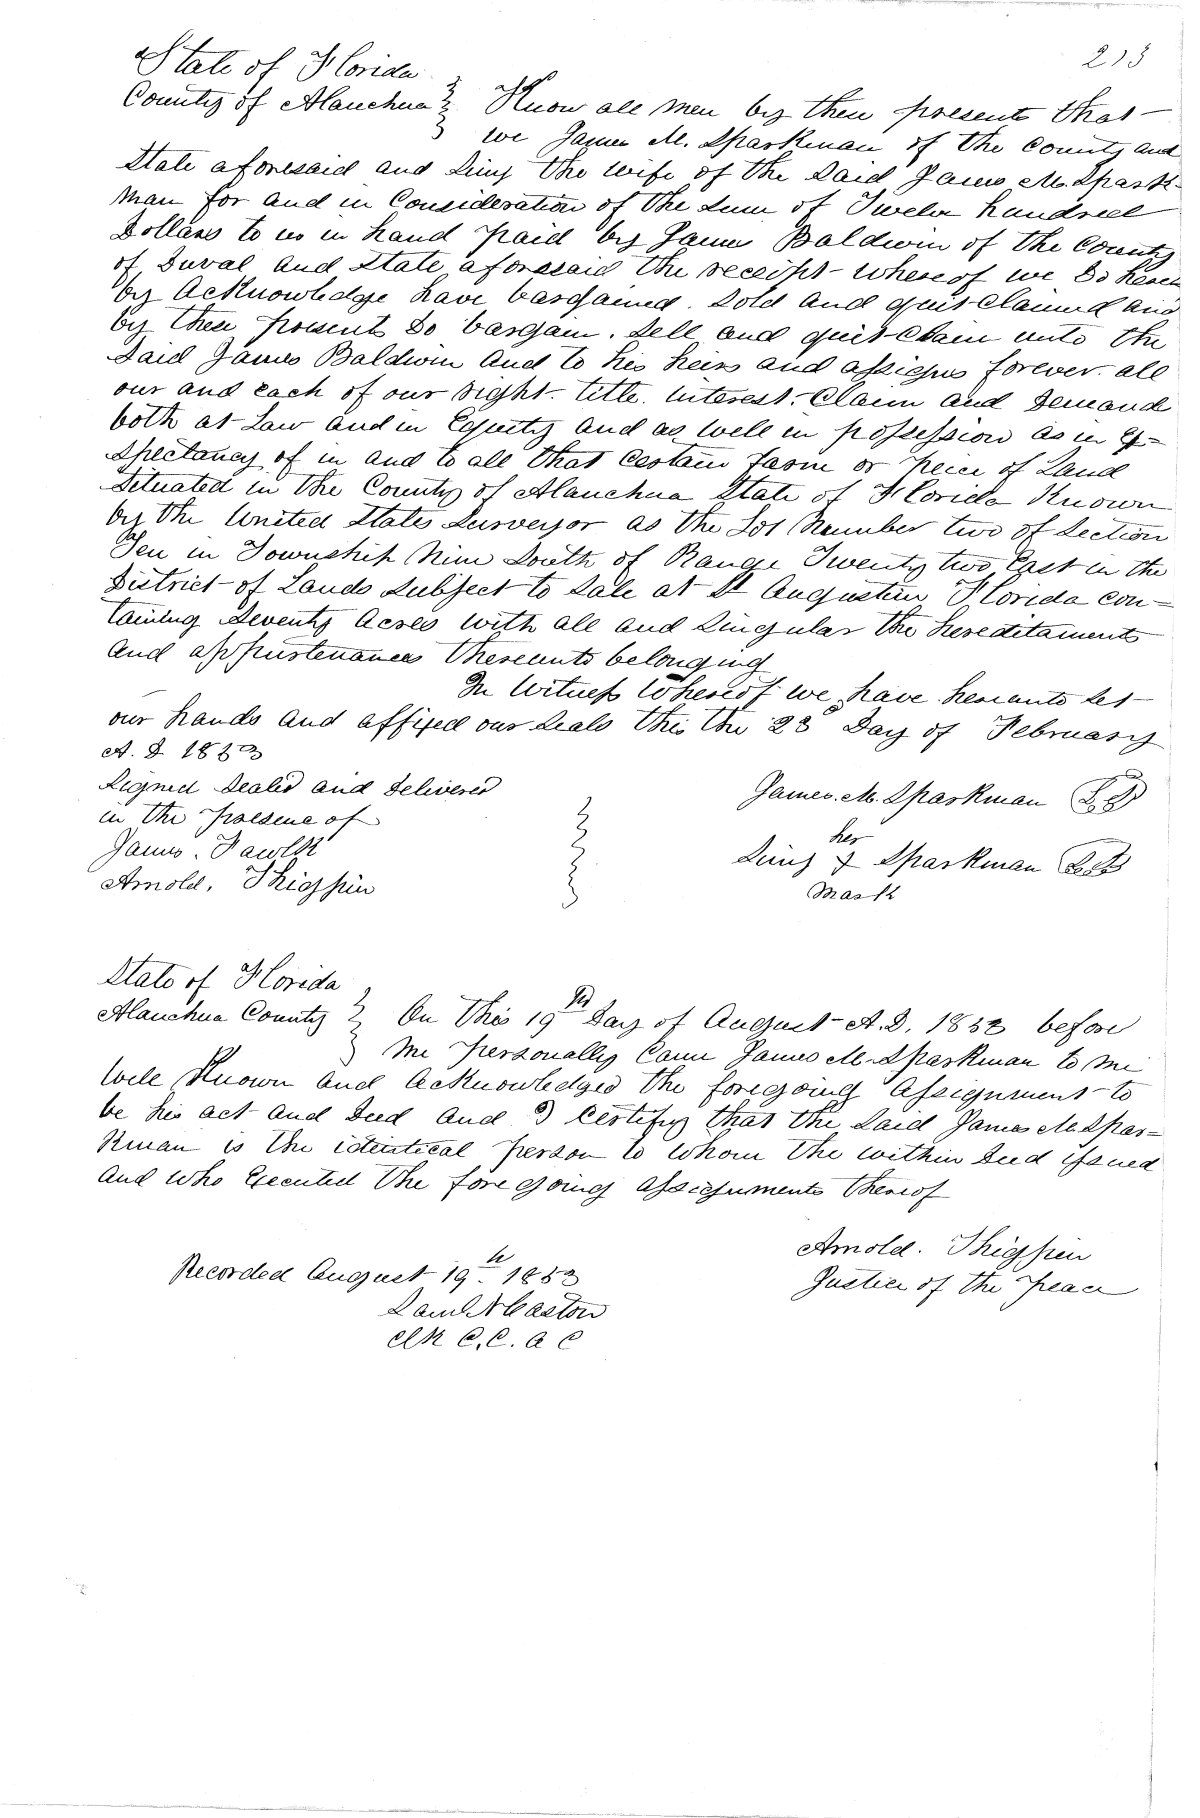 213
State of Florida
County of Alauchua } Know all men by these presents that
we James M. Sparkman of the County and
State aforesaid and Siny the wife of the Said James M. Spark-
man for and in Consideration of the Sum of Twelve hundred
Dollars to us in hand paid by James Baldwin of the County
of Duval and State aforesaid the receipt whereof we do here
by Acknowledge have bargained. Sold and quit Claimed and
by these presents do bargain. Sell and quit Claim unto the
Said James Baldwin and to his heirs and assigns forever all
our and each of our right. title. interest. Claim and Demand
both at Law and in Equity and as well in possession as in Ex=
spectancy of in and to all that certain farm or peice of Land
Situated in the County of Alauchua State of Florida Known
by the United States Surveyor as the Lot Number two of Section
Ten in Township Nine South of Range Twenty two East in the
District of Lands Subject to Sale at St Augustin Florida con=
taining Seventy Acres with all and Singular the hereditaments
and appurtenances thereunto belonging
In Witness Whereof we have hereunto Set
our hands and affixed our Seals this the 23d Day of February
A. D. 1853
Signed Sealed and delivered
in the presence of
James.
Arnold. Thigpin
James. M. Sparkman LS
her
Siny X Sparkman LS
mark
State of Florida
Alauchua County } On this 19th Day of August A. D. 1853 before
me personally Came James M. Sparkman to me
Well Known and Acknowledged the foregoing Assignment to
be his act and Deed and I Certify that the Said James M. Spar=
kman is the identical person to whom the within Deed issued
and who Executed the foregoing assignments thereof
Arnold. Thigpin
Justice of the Peace
Recorded August 19th 1853
Clk C. C. A C